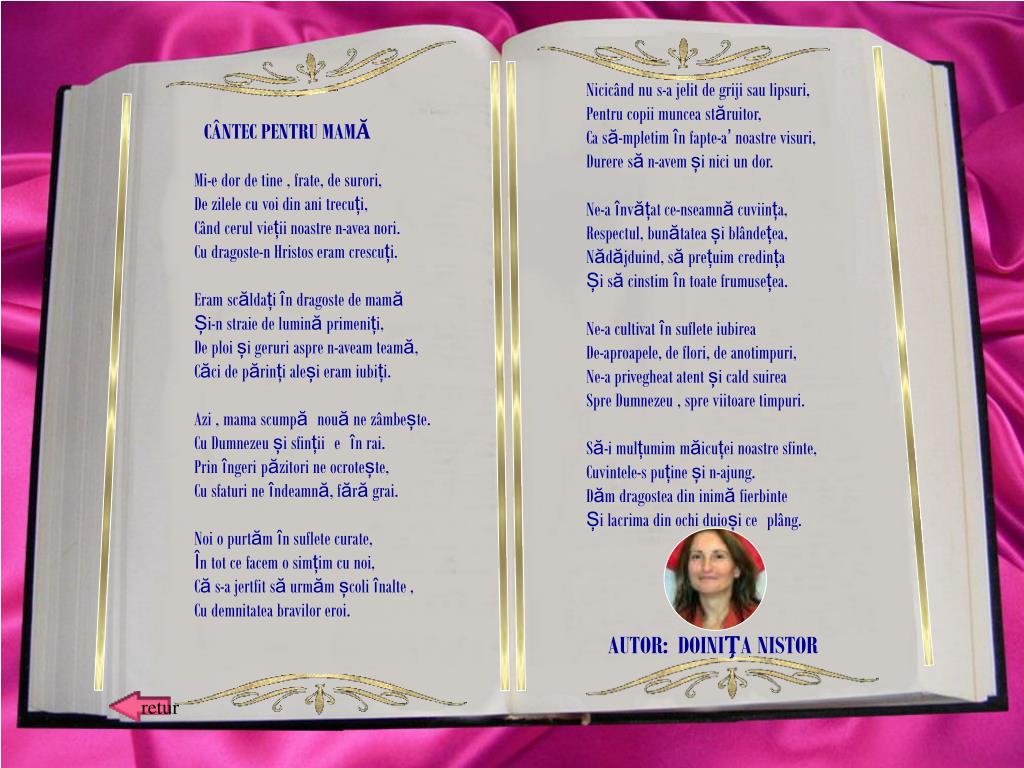 CÂNTEC PENTRU MAMĂ
Mi-e dor de tine , frate, de surori,
De zilele cu voi din ani trecuți,
Când cerul vieții noastre n-avea nori.
Cu dragoste-n Hristos eram crescuți.
Eram scăldați în dragoste de mamă
Și-n straie de lumină primeniți,
De ploi și geruri aspre n-aveam teamă,
Căci de părinți aleși eram iubiți.
Azi , mama scumpă nouă ne zâmbește.
Cu Dumnezeu și sfinții e în rai.
Prin îngeri păzitori ne ocrotește,
Cu sfaturi ne îndeamnă, fără grai.
Noi o purtăm în suflete curate,
În tot ce facem o simțim cu noi,
Că s-a jertfit să urmăm școli înalte ,
Cu demnitatea bravilor eroi.
Nicicând nu s-a jelit de griji sau lipsuri,
Pentru copii muncea stăruitor,
Ca să-mpletim în fapte-a’ noastre visuri,
Durere să n-avem și nici un dor.
Ne-a învățat ce-nseamnă cuviința,
Respectul, bunătatea și blândețea,
Nădăjduind, să prețuim credința
Și să cinstim în toate frumusețea.
Ne-a cultivat în suflete iubirea
De-aproapele, de flori, de anotimpuri,
Ne-a privegheat atent și cald suirea
Spre Dumnezeu , spre viitoare timpuri.
Să-i mulțumim măicuței noastre sfinte,
Cuvintele-s puține și n-ajung.
Dăm dragostea din inimă fierbinte
Și lacrima din ochi duioși ce plâng.
AUTOR: DOINIȚA NISTOR
retur